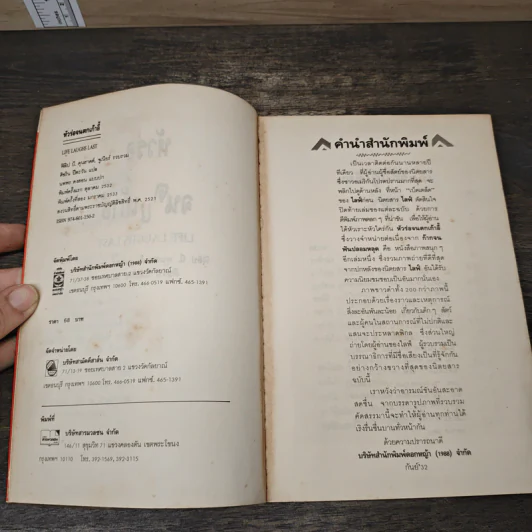 หัวร่อจนตกเก้าอี้
LIFE LAUGHS LAST
ฟิลิป บี. คุนฮาดท์, จูเนียร์ รวบรวม
พิมพ์ครั้งแรก ตุลาคม 2532
สงวนลิขสิทธิ์ตามพระราชบัญญัติลิขสิทธิ์ พ.ศ. 2521
จัดพิมพ์โดย
บริษัทสำนักพิมพ์ดอกหญ้า (1988) จำกัด
71/17-19 ซอยแกบาตสาย 2 แขวงวัดกัลยาณ์
เขตธนบุรี กรุงเทพฯ 10600 โทร. 466-0519 แฟกซ์. 465-1391
ราคา 88 บาท
จัดจำหน่ายโดย
บริษัทสำนัก จำกัด
71/13-19 2 แขวงวัดกัลยาณ์
เขตธนบุรี กรุงเทพฯ 10600 โทร. 466-0519 แฟกซ์. 465-1391
พิมพ์ที่
บริษัทสารมวลชน จำกัด
146/11 สุขุมวิท 71 แขวงคลองตัน เขตพระโขนง
กรุงเทพฯ 10110 โทร. 392-1569, 392-3115
คำนำสำนักพิมพ์
เป็นเวลาติดต่อกันนานหลายปี
ทีเดียว ที่ผู้อ่านผู้ซื่อสัตย์ของนิตยสาร
ซึ่งชาวอเมริกันโปรดปรานมากที่สุด จะ
พลิกไปสุดด้านหลัง ที่หน้า "เบ็ดเตล็ด"
ของ ไลฟ์ก่อน นิตยสาร ไลฟ์ ตัดสินใจ
ปิดท้ายเล่มของแต่ละฉบับ ด้วยการ
ตีพิมพ์ภาพตลกๆ ที่น่าขัน เพื่อให้ผู้อ่าน
ได้หัวเราะหัวใคร่กัน หัวร่อจนตกเก้าอี้
ซึ่งวางจำหน่ายต่อเนื่องจาก หัวรอจน
ฟันปลอมหลุด คือ หนังสือภาพสนุกๆ
อีกเล่มหนึ่ง ซึ่งรวมภาพถ่ายที่ดีที่สุด
จากปกหลังของนิตยสาร ไลฟ์ อันได้รับ
ความนิยมชมชอบเป็นอันมากนั่นเอง
ภาพขาวดำทั้ง 200 กว่าภาพนี้
ประกอบด้วยเรื่องราวและเหตุการณ์
สิ่งละอันพันละน้อย เกี่ยวกับเด็กๆ สัตว์
และผู้คนในสถานการณ์ที่ไม่ปกติและ
แสนจะประหลาดพิกล ซึ่งส่วนใหญ่
ถ่ายโดยผู้อ่านของไลฟ์ ผู้รวบรวมเป็น
บรรณาธิการที่มีชื่อเสียงเป็นที่รู้จักกัน
อย่างกว้างขวางที่สุดของนิตยสาร
ฉบับนี้
เราหวังว่าอารมณ์ขันอันสะอาด
สดชื่น จากบรรดารูปภาพที่รวบรวม
คัดสรรมานี้จะทำให้ผู้อ่านทุกท่านได้
เริงรื่นชื่นบานทั่วหน้ากัน
ด้วยความปรารถนาดี
บริษัทสำนักพิมพ์ดอกหญ้า (1988) จำกัด
กันย์'32